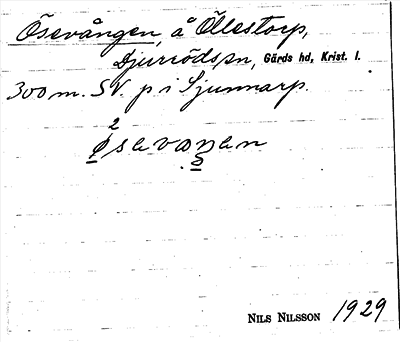 Ösevången, å Öllestorp,
Djurröds sn, Gärds hd, Krist. l.
300 m. SV. p i Sjunnarp.
2
øsevaŋen
NILS NILSSON 1929